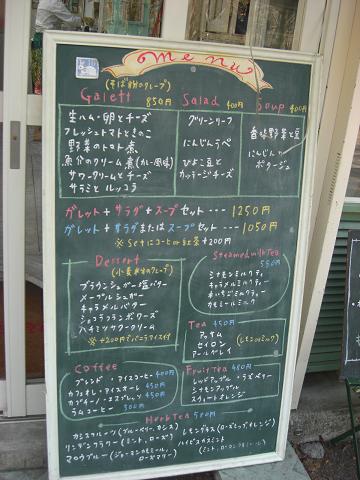 menu
(そば粉のクレープ)
Galett 850円
生ハム・卵とチーズ
フレッシュトマトときのこ
野菜のトマト煮
魚介のクリーム煮(カレー風味)
サワークリームとチーズ
サラミとルッコラ
Salad 400円
グリーンリーフ
にんじんラペ
ひよこ豆と
カッテージチーズ
Soup 400円
香味野菜と豆
にんじん
ポタージュ
ガレット+サラダ+スープセット --- 1250円
ガレット+サラダまたはスープセット --- 1050円
※Setにコーヒーor紅茶+200円
Dessert
(小麦粉のクレープ)
ブラウンシュガー塩バター
メープルシュガー
キャラメルバター
ショコラフランボワーズ
ハチミツサワークリーム
※+200円でバニラアイス付
Steamed milk Tea
550円
シナモンミルクティー
キャラメルミルクティー
カモミールミルク
Tea 450円
アッサム
セイロン
アールグレイ
(レモンorミルク)
Coffee
ブレンド・アイスコーヒー 400円
カフェオレ・アイスオーレ 450円
カプチーノ・エスプレッソ 450円
ラムコーヒー 500円
Fruit Tea 450円
レッドアップル・ラズベリー
シナモンアップル
スウィートオレンジ
Herb Tea 500円
カシスフルーツ(ブルーベリー、カシス)
リンデンフラワー(ミント、ローズ)
マロウブルー(ジャーマンカモミール、
ローズマリー)
レモングラス(ローズヒップ、オレンジ)
ハイビスカスミント